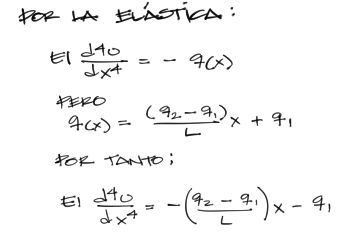 POR LA ELÁSTICA:
EI d⁴υ/dx⁴ = - q(x)
PERO
q(x) = (q₂ - q₁)/L x + q₁
POR TANTO;
EI d⁴υ/dx⁴ = -((q₂ - q₁)/L)x - q₁